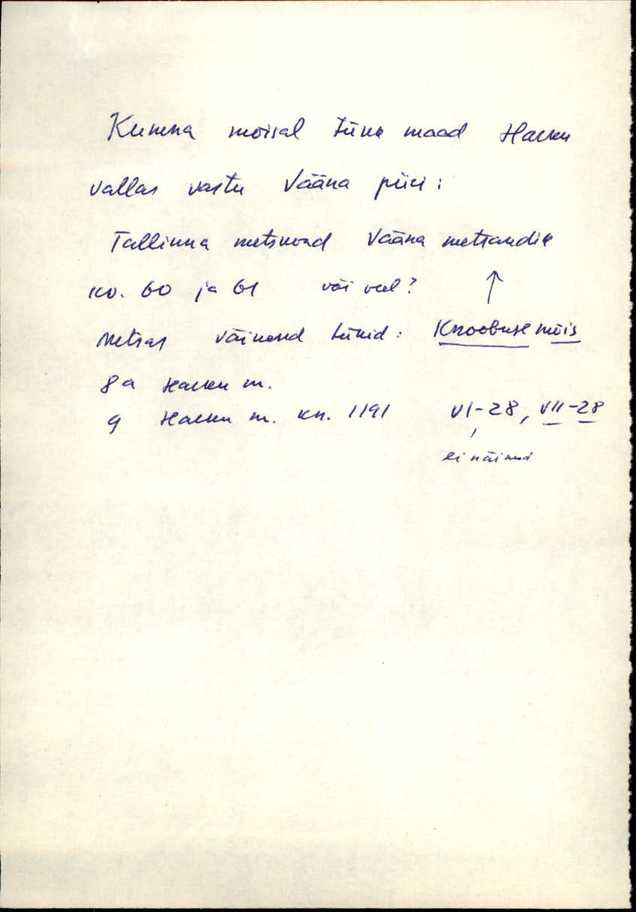 Kumna mõisal tükk maad Harku
vallas vastu Vääna piiri:
Tallinna metskond Vääna metsandik
kv. 60 ja 61 või veel? ↑
Metsas väikesed tükid: Knoobuse mõis
8a Harku m.
9 Harku m. kn. 1191 VI-28, VII-28
ei näinud